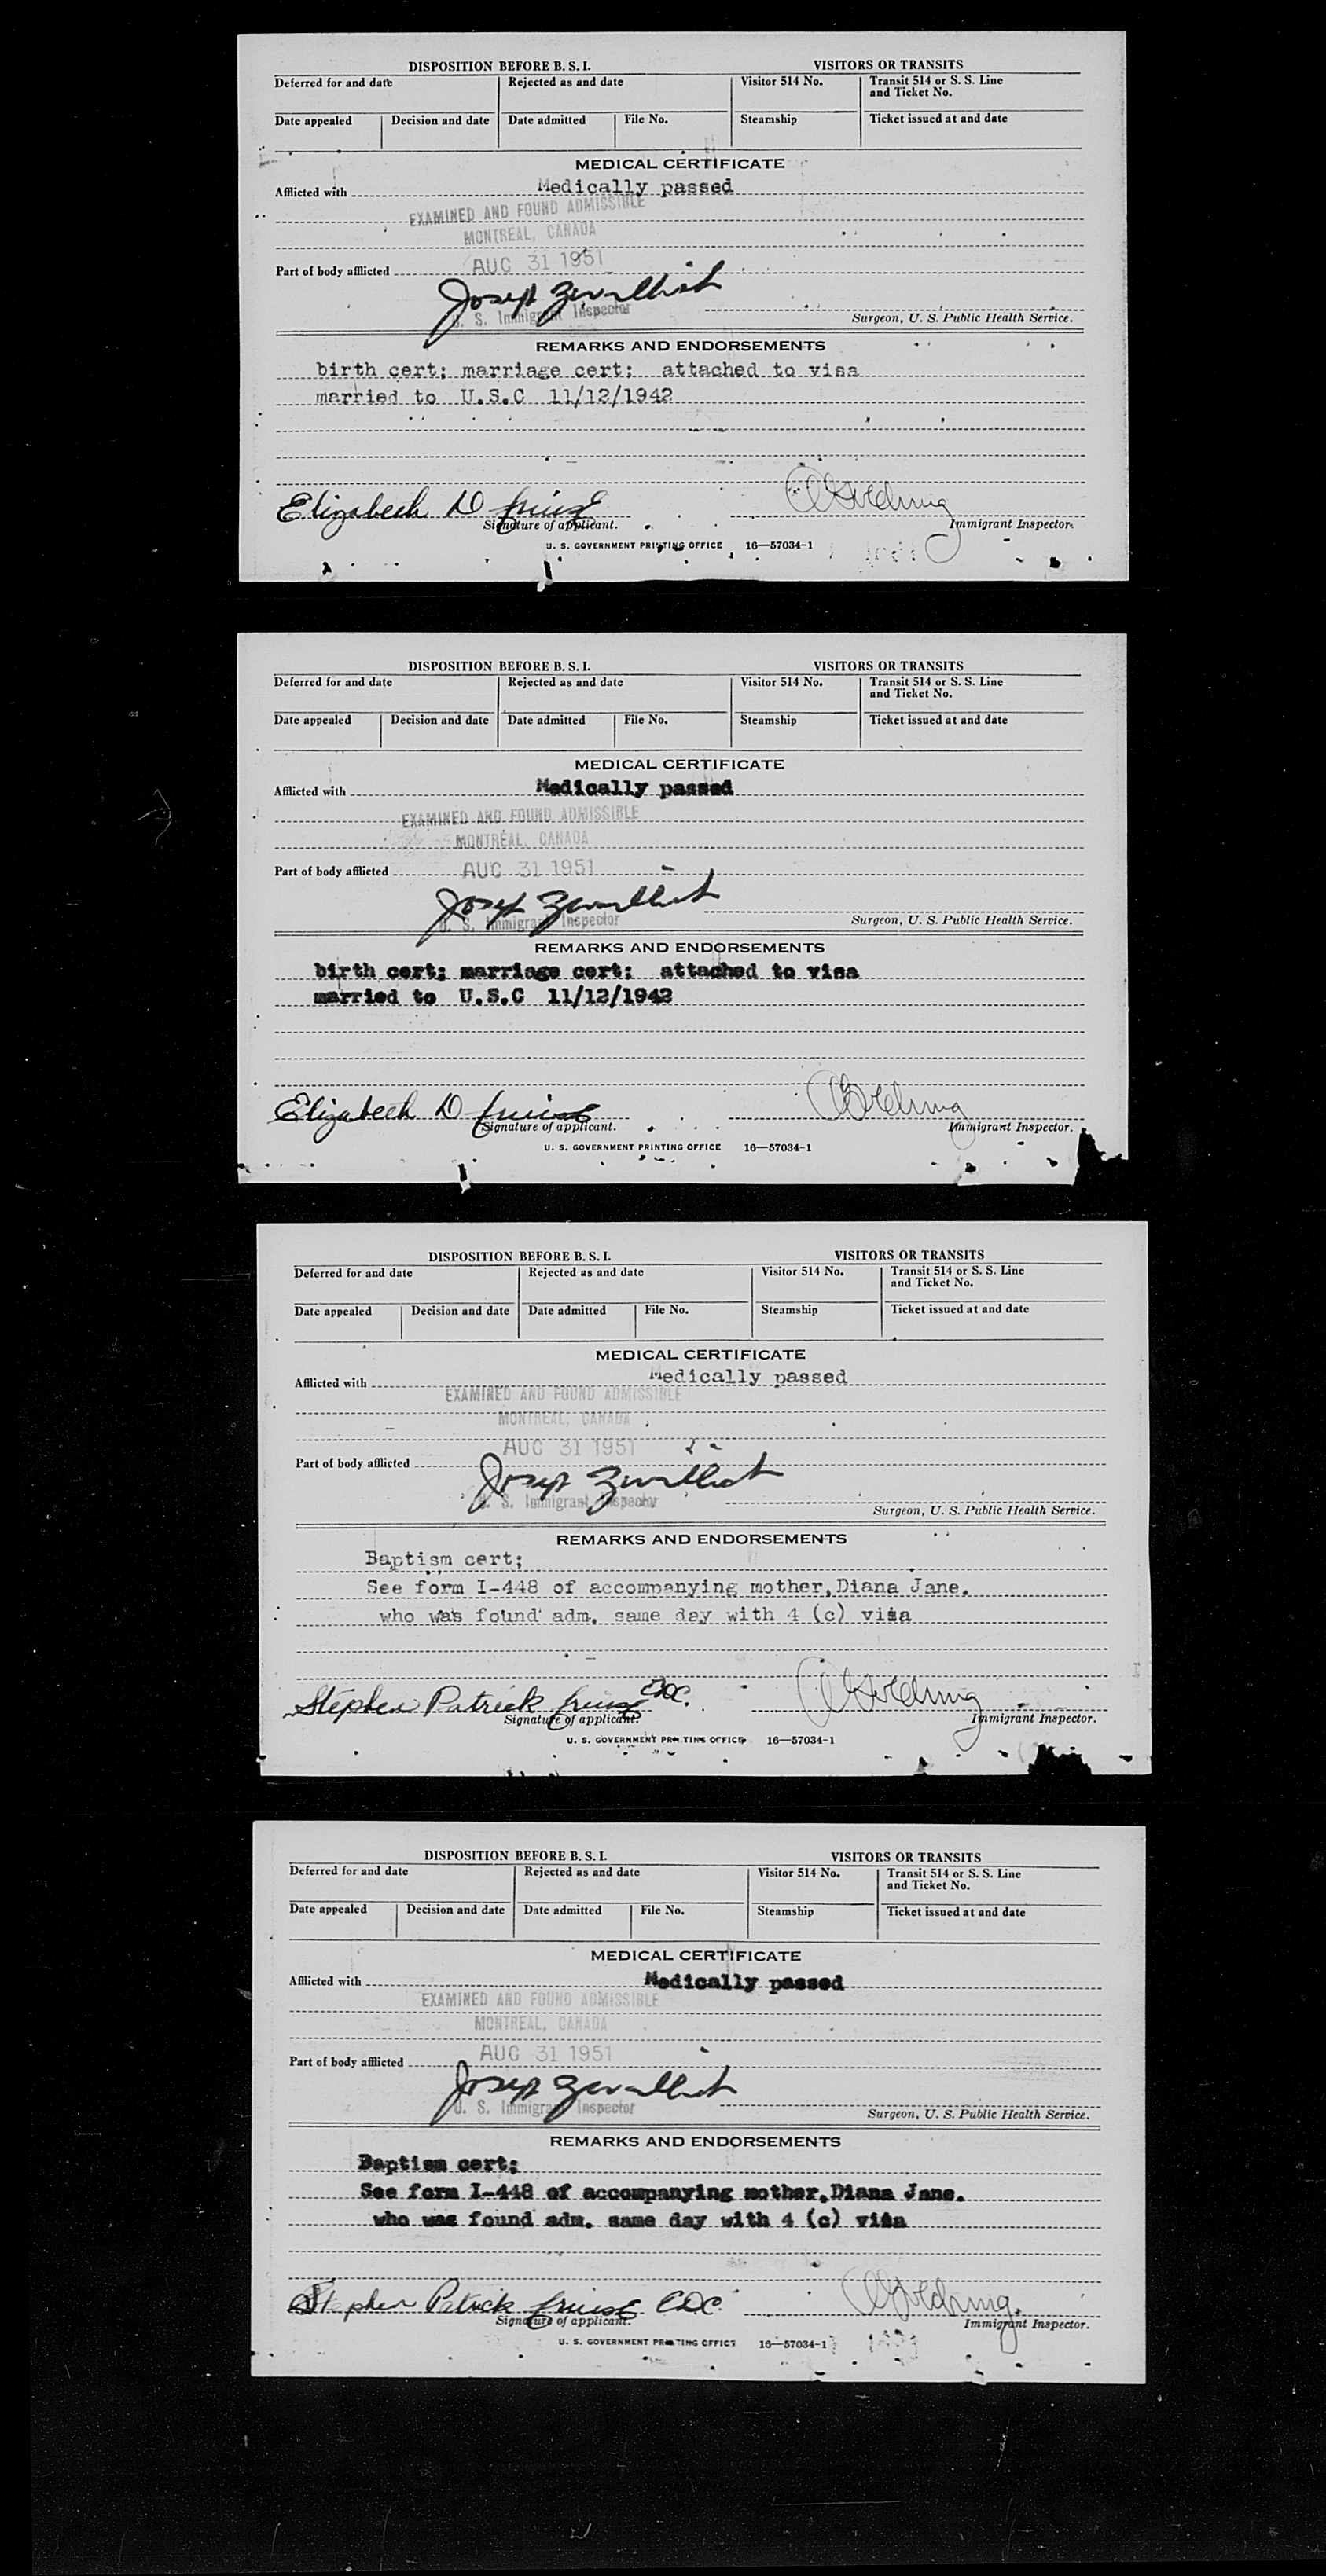 DISPOSITION BEFORE B. S. I. VISITORS OR TRANSITS
Deferred for and date Rejected as and date Visitor 514 No. Transit 514 or S. S. Line
and Ticket No.
Date appealed Decision and date Date admitted File No. Steamship Ticket issued at and date
MEDICAL CERTIFICATE
Afflicted with Medically passed
EXAMINED AND FOUND ADMISSIBLE
MONTREAL, CANADA
Part of body afflicted AUG 31 1951
Joseph
U. S. Immigrant Inspector
Surgeon, U. S. Public Health Service.
REMARKS AND ENDORSEMENTS
birth cert; marriage cert; attached to visa
married to U.S.C 11/12/1942
Elizabeth D
Signature of applicant. Immigrant Inspector.
U. S. GOVERNMENT PRINTING OFFICE 16—57034-1
DISPOSITION BEFORE B. S. I. VISITORS OR TRANSITS
Deferred for and date Rejected as and date Visitor 514 No. Transit 514 or S. S. Line
and Ticket No.
Date appealed Decision and date Date admitted File No. Steamship Ticket issued at and date
MEDICAL CERTIFICATE
Afflicted with Medically passed
EXAMINED AND FOUND ADMISSIBLE
MONTREAL, CANADA
Part of body afflicted AUG 31 1951
Joseph
U. S. Immigrant Inspector
Surgeon, U. S. Public Health Service.
REMARKS AND ENDORSEMENTS
birth cert; marriage cert; attached to visa
married to U.S.C 11/12/1942
Elizabeth D
Signature of applicant. Immigrant Inspector.
U. S. GOVERNMENT PRINTING OFFICE 16—57034-1
DISPOSITION BEFORE B. S. I. VISITORS OR TRANSITS
Deferred for and date Rejected as and date Visitor 514 No. Transit 514 or S. S. Line
and Ticket No.
Date appealed Decision and date Date admitted File No. Steamship Ticket issued at and date
MEDICAL CERTIFICATE
Afflicted with Medically passed
EXAMINED AND FOUND ADMISSIBLE
MONTREAL, CANADA
AUG 31 1951
Part of body afflicted
Joseph
U. S. Immigrant Inspector
Surgeon, U. S. Public Health Service.
REMARKS AND ENDORSEMENTS
Baptism cert;
See form I-448 of accompanying mother, Diana Jane.
who was found adm. same day with 4 (c) visa
Stephen Patrick
Signature of applicant. Immigrant Inspector.
U. S. GOVERNMENT PRINTING OFFICE 16—57034-1
DISPOSITION BEFORE B. S. I. VISITORS OR TRANSITS
Deferred for and date Rejected as and date Visitor 514 No. Transit 514 or S. S. Line
and Ticket No.
Date appealed Decision and date Date admitted File No. Steamship Ticket issued at and date
MEDICAL CERTIFICATE
Afflicted with Medically passed
EXAMINED AND FOUND ADMISSIBLE
MONTREAL, CANADA
Part of body afflicted AUG 31 1951
Joseph
U. S. Immigrant Inspector
Surgeon, U. S. Public Health Service.
REMARKS AND ENDORSEMENTS
Baptism cert;
See form I-448 of accompanying mother, Diana Jane.
who was found adm. same day with 4 (c) visa
Stephen Patrick
Signature of applicant. Immigrant Inspector.
U. S. GOVERNMENT PRINTING OFFICE 16—57034-1